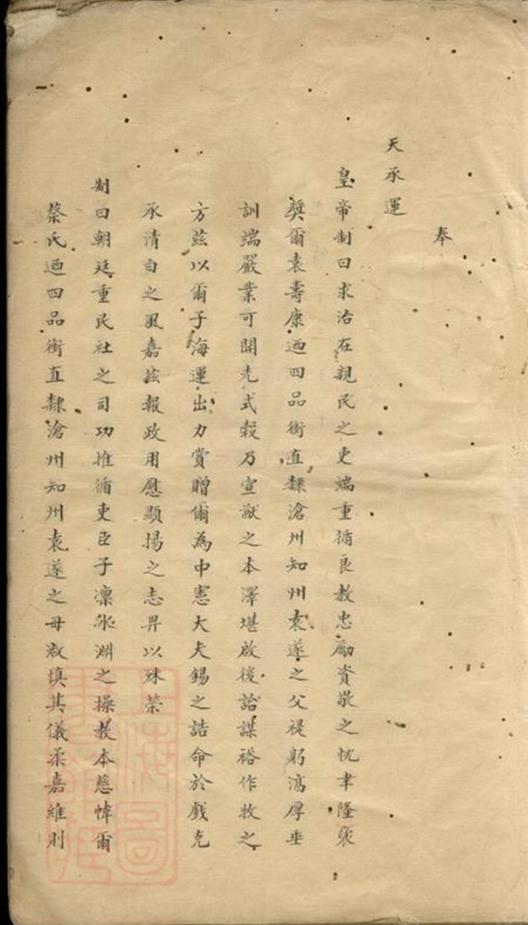 奉
天承運
皇帝制曰求治在親民之吏端重循良教忠勵資敬之忱聿隆褒
奬爾袁壽康廼四品銜直隸滄州知州袁遂之父禔躬淳厚垂
訓端嚴業可開先式穀乃宣猷之本澤堪啟後詒謀裕作牧之
方茲以爾子海運出力賞贈爾為中憲大夫錫之誥命於戲克
承清白之風嘉茲報政用慰顯揚之志畀以殊榮
制曰朝廷重民社之司功推循吏臣子凜冰淵之操教本慈幃爾
蔡氏廼四品銜直隸滄州知州袁遂之母淑慎其儀柔嘉維則